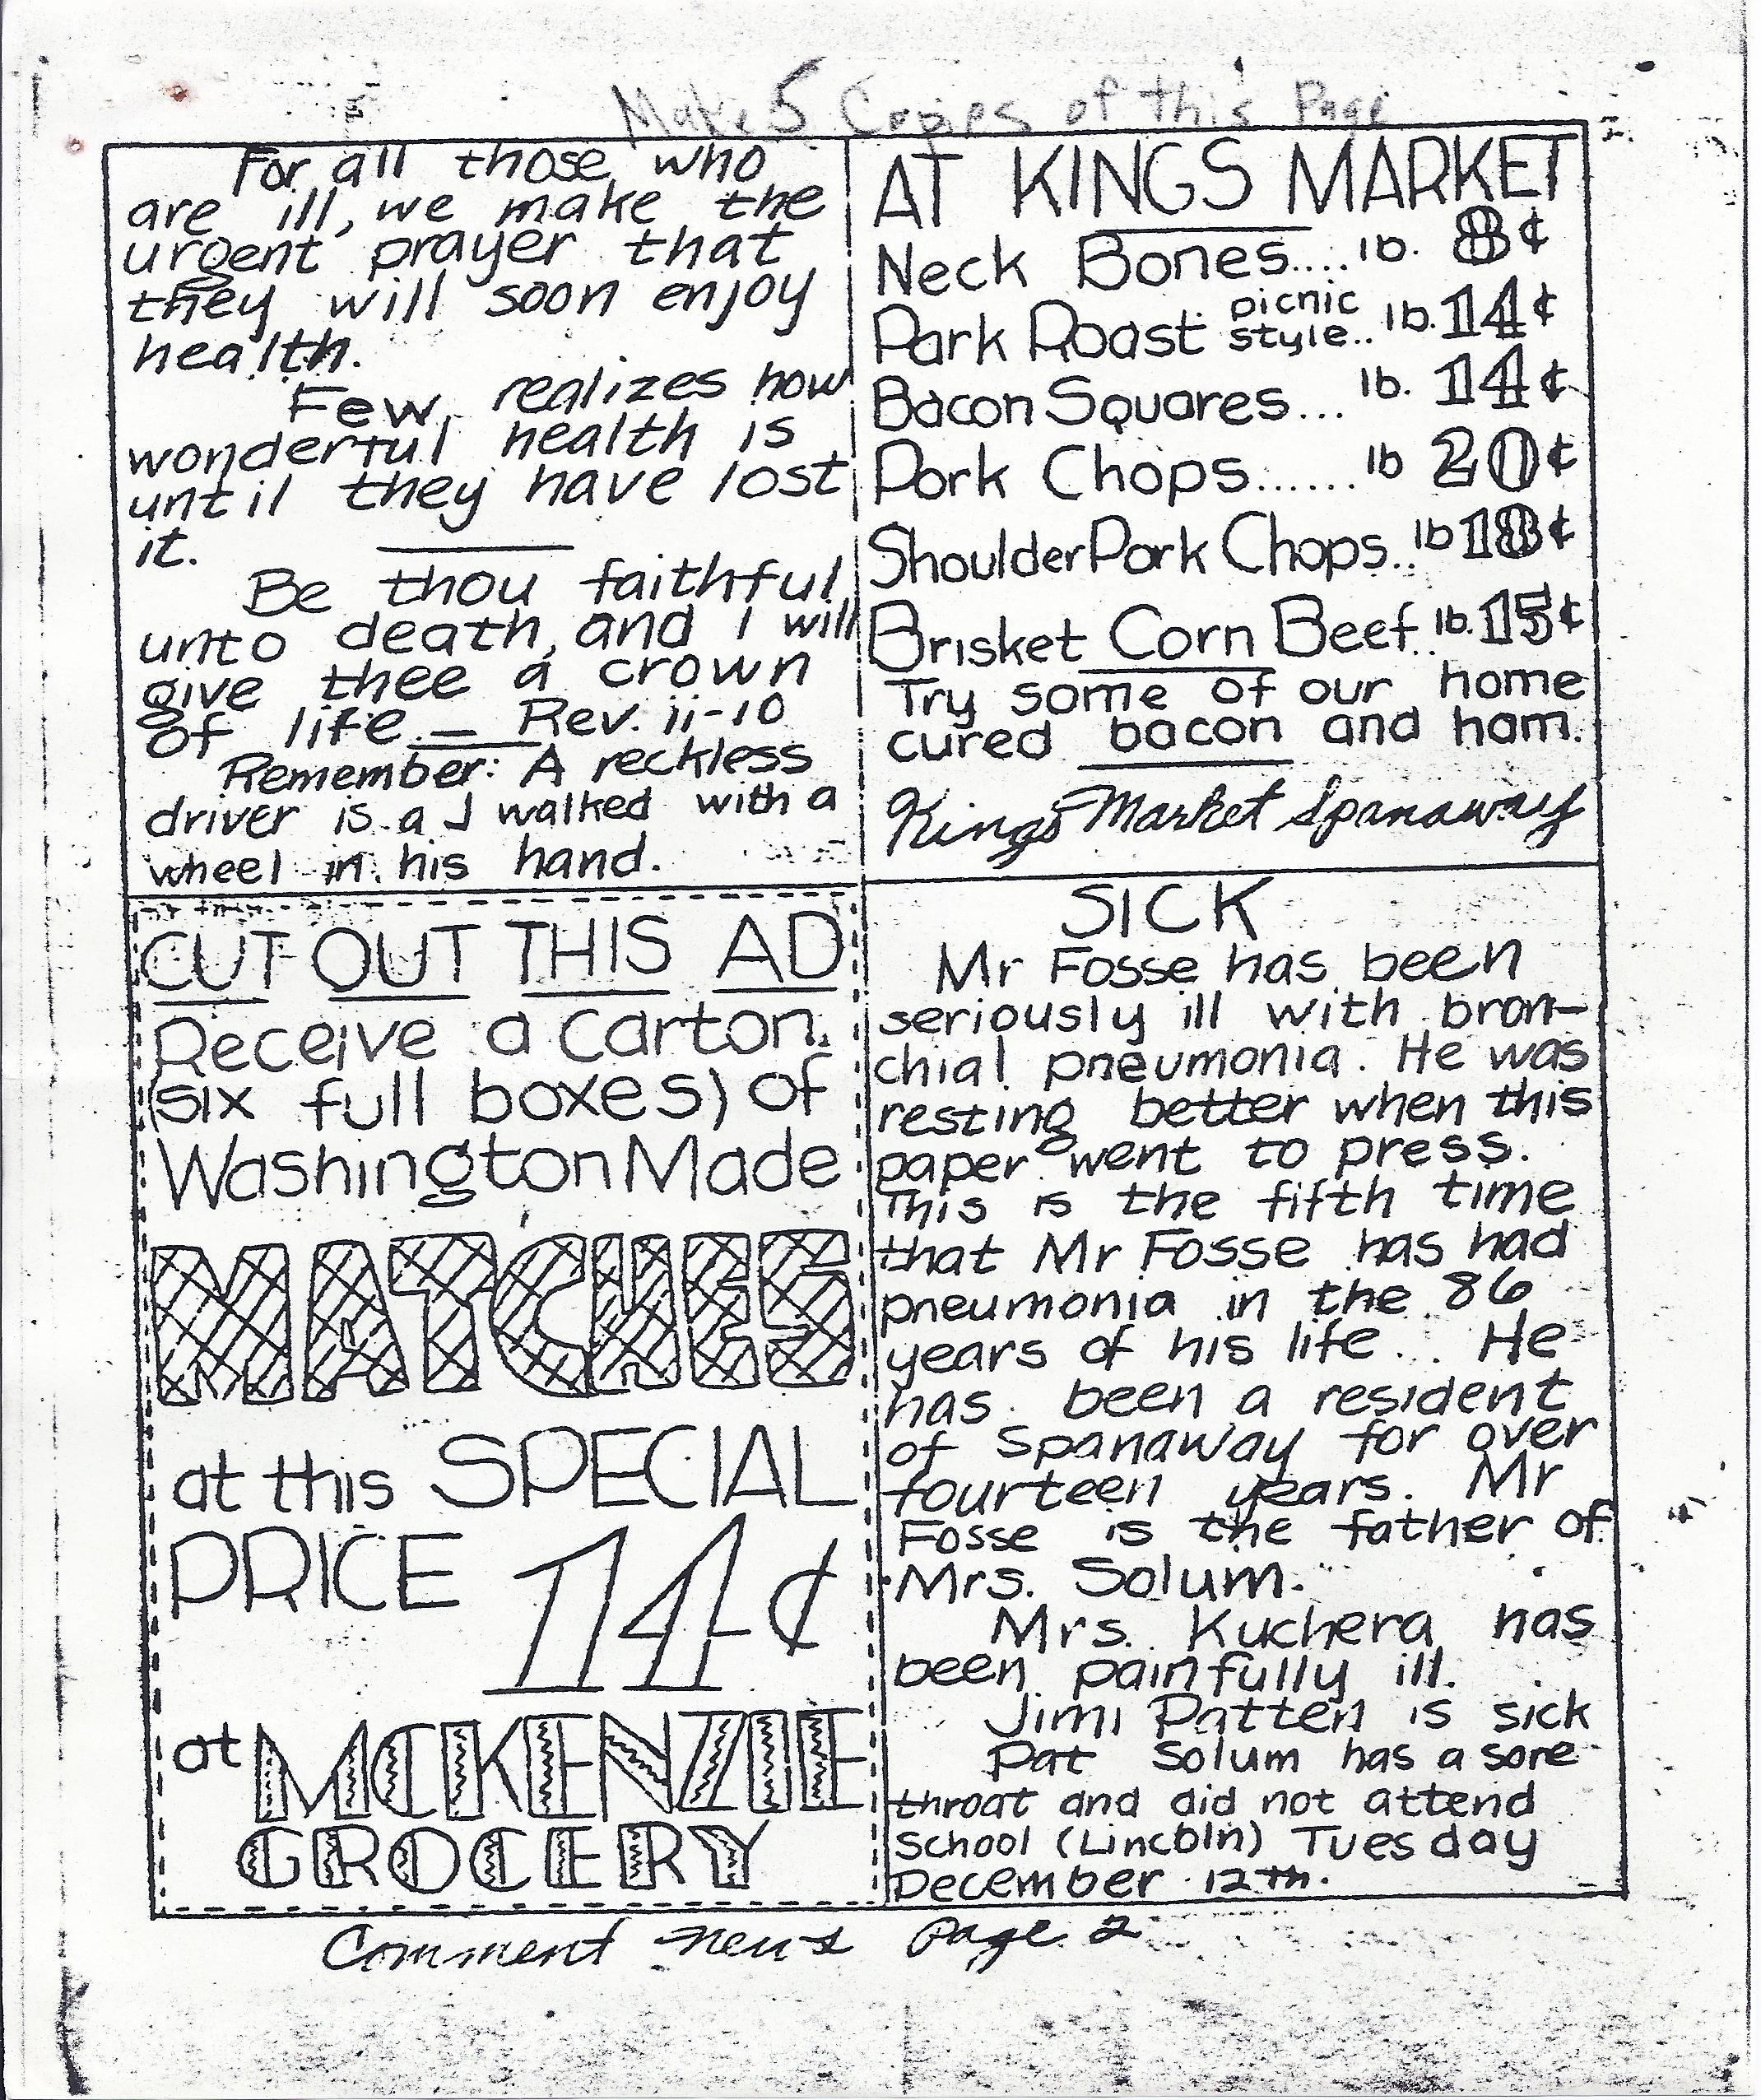 Make 5 Copies of this Page
For all those who
are ill, we make the
urgent prayer that
they will soon enjoy
health.
Few realizes how
wonderful health is
until they have lost
it.
Be thou faithful
unto death, and I will
give thee a crown
of life. — Rev. ii-10
Remember: A reckless
driver is a J walked with a
wheel in his hand.
AT KINGS MARKET
Neck Bones.... lb. 8¢
Park Roast picnic style.. lb. 14¢
Bacon Squares... lb. 14¢
Pork Chops...... lb 20¢
Shoulder Pork Chops.. lb 18¢
Brisket Corn Beef.. lb. 15¢
Try some of our home
cured bacon and ham.
Kings Market Spanaway
CUT OUT THIS AD
Receive a carton
(six full boxes) of
Washington Made
MATCHES
at this SPECIAL
PRICE 14¢
at MCKENZIE
GROCERY
SICK
Mr Fosse has been
seriously ill with bron-
chial pneumonia. He was
resting better when this
paper went to press.
This is the fifth time
that Mr Fosse has had
pneumonia in the 86
years of his life... He
has been a resident
of Spanaway for over
fourteen years. Mr
Fosse is the father of
Mrs. Solum.
Mrs. Kuchera has
been painfully ill.
Jimi Patten is sick
Pat Solum has a sore
throat and did not attend
School (Lincoln) Tuesday
December 12th.
Comment news page 2